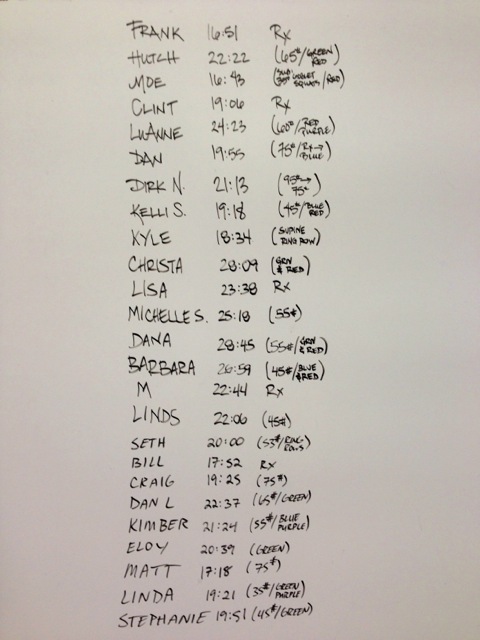 FRANK 16:51 Rx
HUTCH 22:22 (65#/GREEN RED)
MOE 16:43 (SUB GOBLET SQUATS/RED)
CLINT 19:06 Rx
LUANNE 24:23 (60#/RED PURPLE)
DAN 19:55 (75#/Rx→ BLUE)
DIRK N. 21:13 (95#→ 75#)
KELLI S. 19:18 (45#/BLUE RED)
KYLE 18:34 (SUPINE RING ROW)
CHRISTA 28:09 (GRN & RED)
LISA 23:38 Rx
MICHELLE S. 25:18 (55#)
DANA 28:45 (55#/GRN & RED)
BARBARA 26:59 (45#/BLUE & RED)
M 22:44 Rx
LINDS 22:06 (45#)
SETH 20:00 (53#/RING ROWS)
BILL 17:52 Rx
CRAIG 19:25 (75#)
DAN L 22:37 (65#/GREEN)
KIMBER 21:24 (55#/BLUE PURPLE)
ELOY 20:39 (GREEN)
MATT 17:18 (75#)
LINDA 19:21 (35#/GREEN PURPLE)
STEPHANIE 19:51 (45#/GREEN)